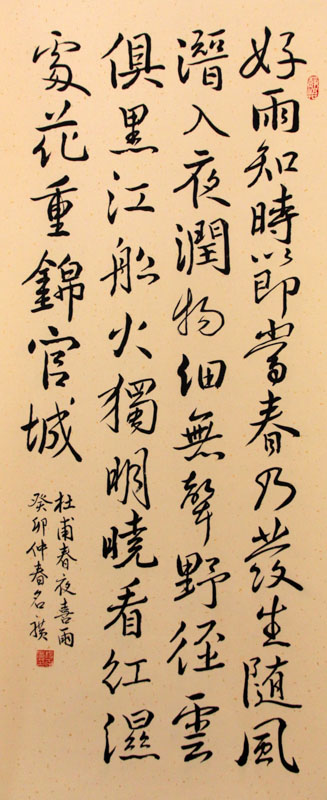 好雨知時節當春乃發生隨風
潛入夜潤物細無聲野徑雲
俱黑江船火獨明曉看紅濕
處花重錦官城
杜甫春夜喜雨
癸卯仲春名撰